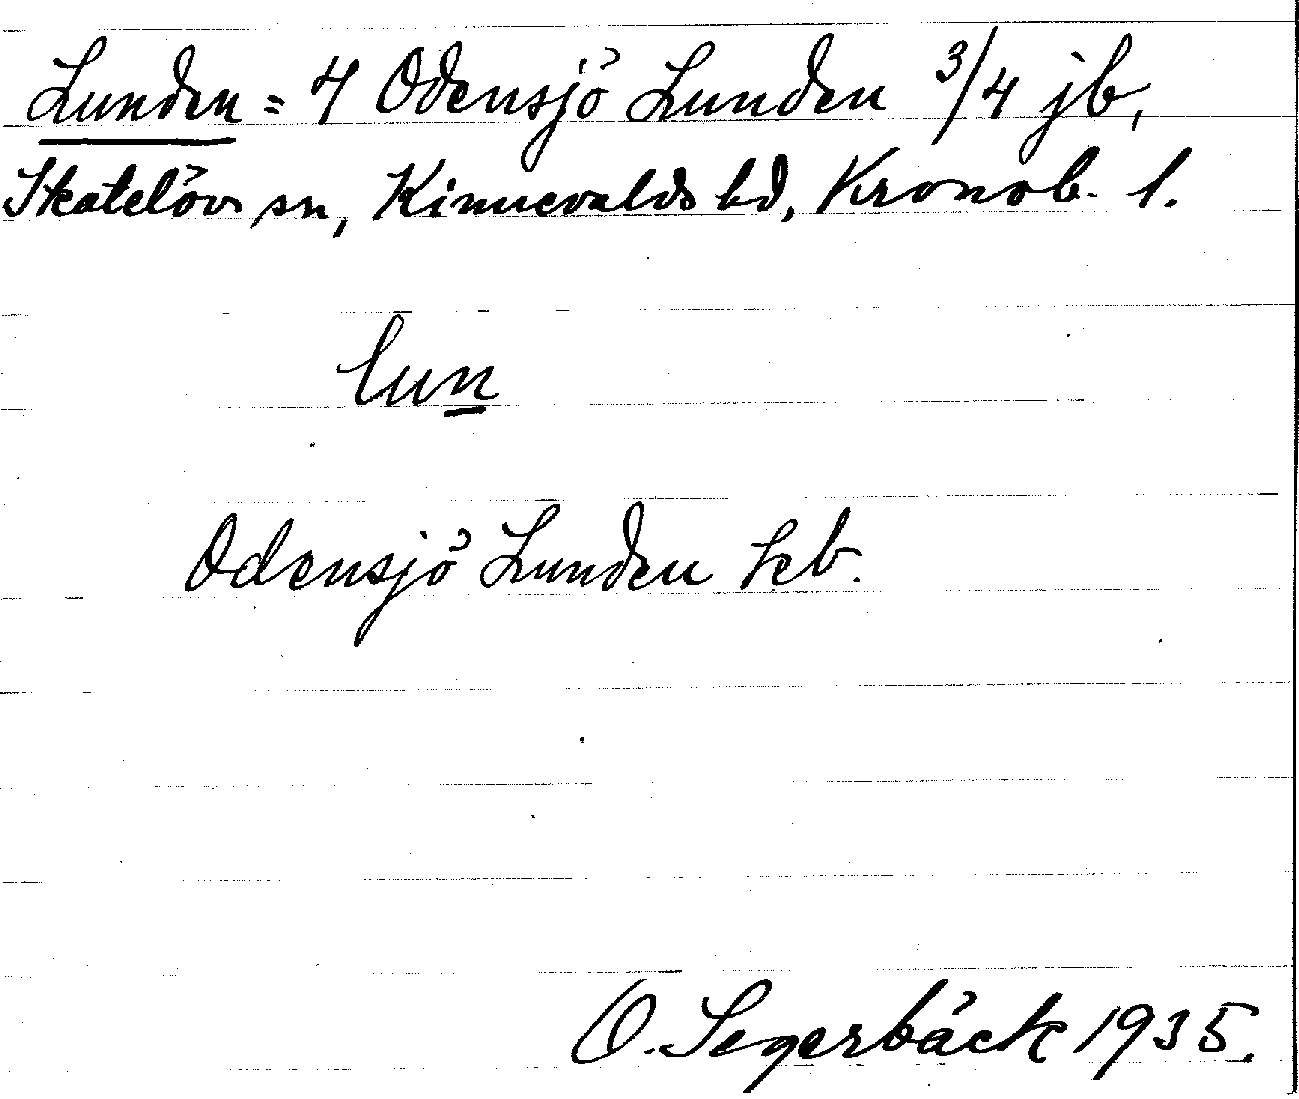 Lunden = 4 Odensjö Lunden 3/4 jb,
Skatelövs sn, Kinnevalds hd, Kronob. l.
lun
Odensjö Lunden keb.
O. Segerbäck 1935.